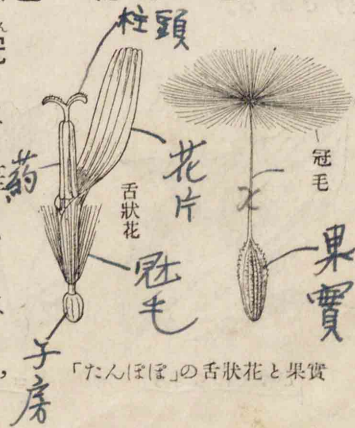 柱頭
葯
舌狀花
花片
冠毛
子房
冠毛
果實
「たんぽぽ」の舌狀花と果實